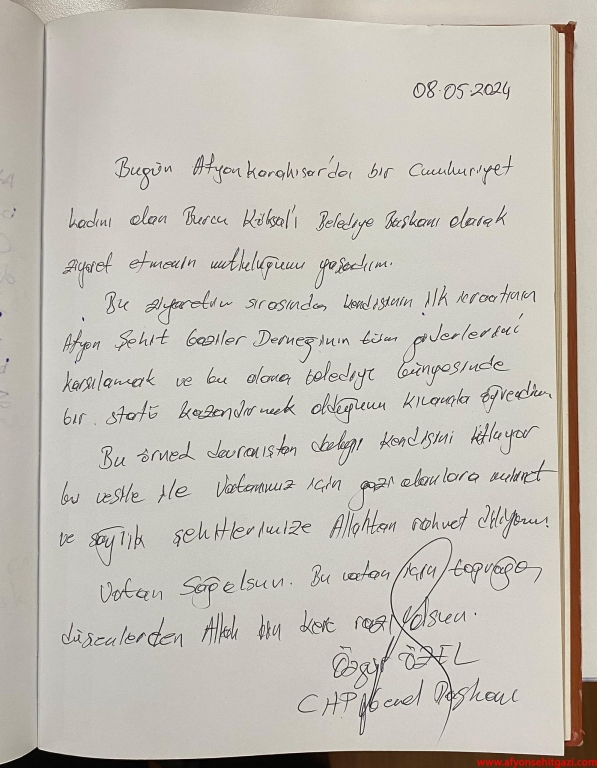 08.05.2024
Bugün Afyonkarahisar'da bir Cumhuriyet
kadını olan Burcu Köksal'ı Belediye Başkanı olarak
ziyaret etmenin mutluluğunu yaşadım.
Bu ziyaretim sırasında kendisinin ilk icraatının
Afyon Şehit Gaziler Derneğinin tüm giderlerini
karşılamak ve bu alana belediye bünyesinde
bir statü kazandırmak olduğunu kıvançla öğrendim
Bu örnek davranıştan dolayı kendisini kutluyor
bu vesile ile Vatanımız için gazi olanlara minnet
ve sağlık şehitlerimize Allahtan rahmet diliyorum.
Vatan Sağolsun. Bu vatan için toprağa
düşenlerden Allah bin kere razı olsun.
Özgür ÖZEL
CHP Genel Başkanı
www.afyonsehitgazi.com